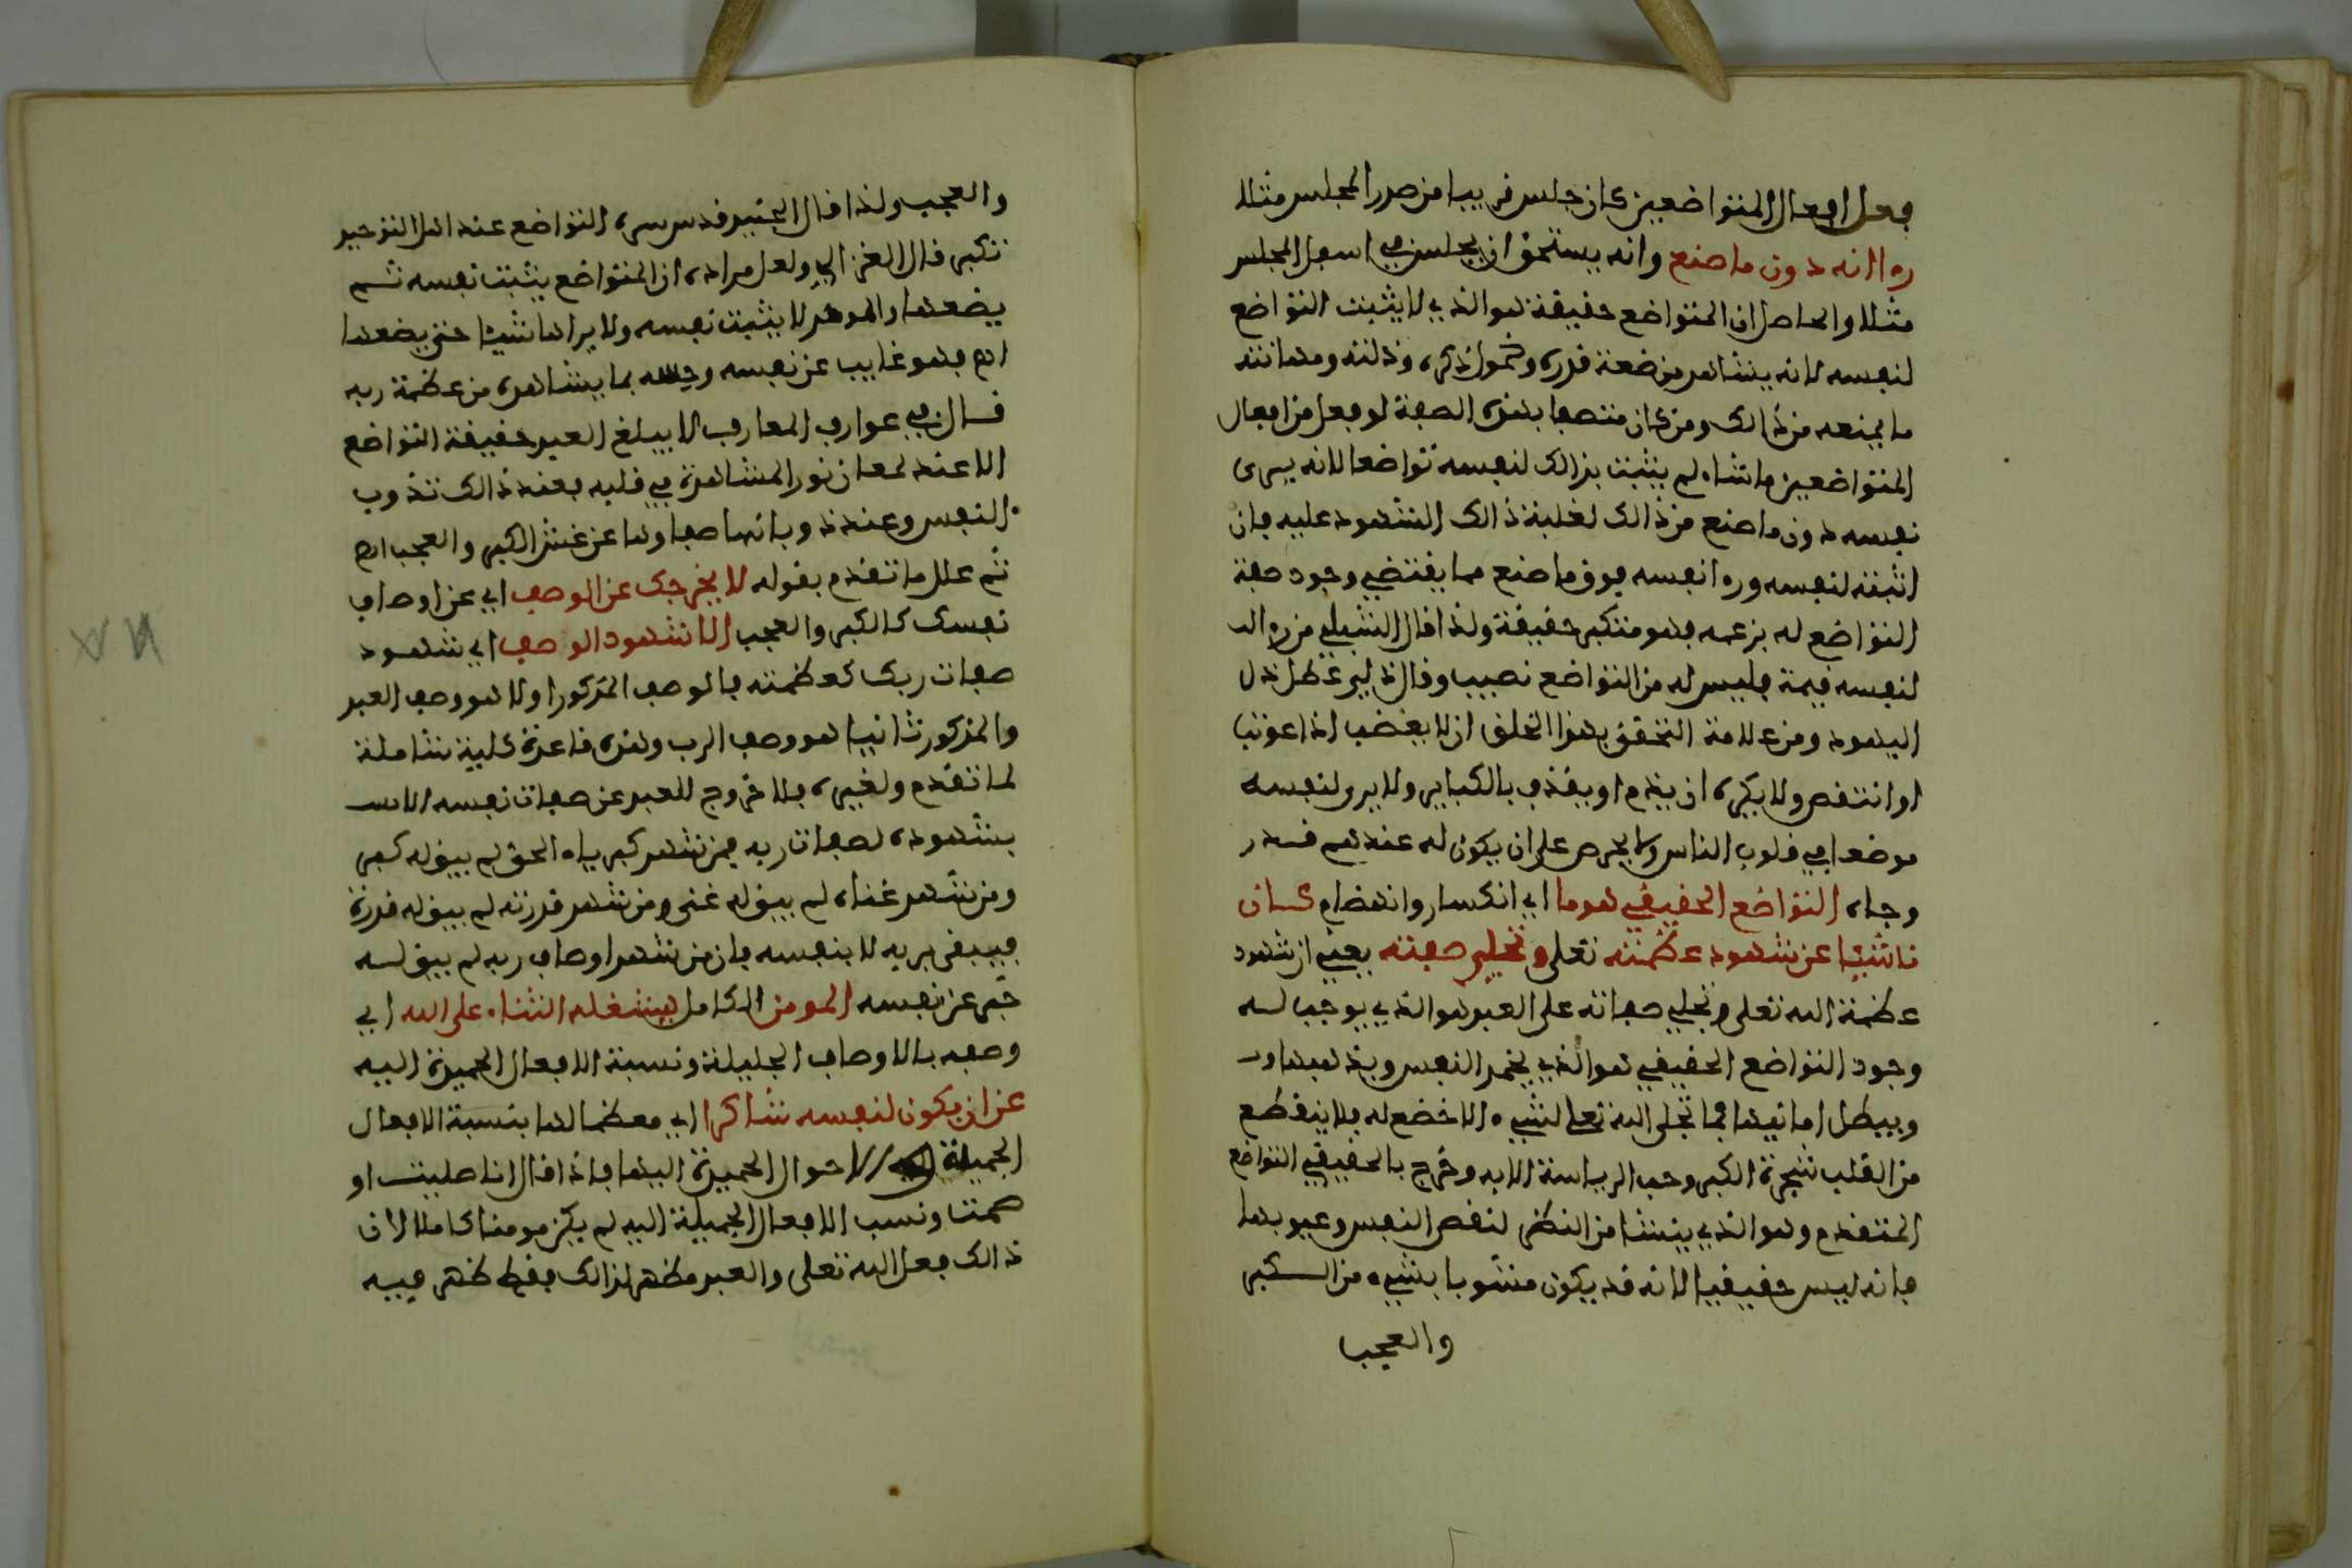 فعل افعال المتواضعين كان جلس قريبا من صدر المجلس مثلا
رءا انه دون ما صنع وانه يستحق ان يجلس في اسفل المجلس
مثلا والحاصل ان المتواضع حقيقة هو الذي لا يثبت التواضع
لنفسه لانه يشاهد من ضعة قدره وخمول ذكره وذلته ومهانته
ما يمنعه من ذالك ومن كان متصفا بهذه الصفة لو فعل من افعال
المتواضعين ما شاء لم يثبت بذالك لنفسه تواضعا لانه يرى
نفسه دون ما صنع من ذالك لغلبة ذالك الشهود عليه فان
اثبته لنفسه ورءا نفسه فوق ما صنع مما يقتضي وجود صفة
التواضع له بزعمه فهو متكبر حقيقة ولذا قال الشبلي من رءا
لنفسه قيمة فليس له من التواضع نصيب وقال ذلي عطل ذل
اليهود ومن علامة التحقق بهذا الخلق ان لا يغضب اذا عوتب
او انتقص ولا يكره ان يذم او يقذف بالكباير ولا يرى لنفسه
موضعا في قلوب الناس ولا يحرص على ان يكون له عندهم قدر
وجاه التواضع الحقيقي هو ما اي انكسار وانهضام كان
ناشئا عن شهود عظمته تعلى وتجلي صفته يعني ان شهود
عظمة الله تعلى وتجلي صفاته على العبد هو الذي يوجب له
وجود التواضع الحقيقي هو الذي يخمد النفس ويذهبها و
ويبطل امانيها فما تجلى الله تعلى لشيء الا خضع له فلا ينقطع
من القلب شجرة الكبر وحب الرياسة الا به وخرج بالحقيقي التواضع
المتقدم وهو الذي ينشا من النظر لنقص النفس وعيوبها
فانه ليس حقيقيا لانه قد يكون مشوبا بشيء من الكبر
والعجب
والعجب ولذا قال الجنيد قدس سره التواضع عند اهل التوحيد
تكبر قال الغزالي ولعل مراده ان المتواضع يثبت نفسه ثم
يضعها والموحد لا يثبت نفسه ولا يراها شيئا حتى يضعها
اه فهو غايب عن نفسه وحسه بما يشاهده من عظمة ربه
قال في عوارف المعارف لا يبلغ العبد حقيقة التواضع
الا عند لمعان نور المشاهدة في قلبه فعند ذالك تذوب
النفس وعند ذوبانها صفاوها عن غش الكبر والعجب اه
ثم علل ما تقدم بقوله لا يخرجك عن الوصف اي عن اوصاف
نفسك كالكبر والعجب الا شهود الوصف اي شهود
صفات ربك كعظمته فالوصف المذكور اولا هو وصف العبد
والمذكور ثانيا هو وصف الرب وهذه قاعدة كلية شاملة
لما تقدم ولغيره فلا خروج للعبد عن صفات نفسه الا
بشهوده لصفات ربه فمن شهد كبرياء الحق لم يبق له كبر
ومن شهد غناه لم يبق له غنى ومن شهد قدرته لم يبق له قدرة
فيبقى بربه لا بنفسه فان من شهد اوصاف ربه لم يبق له
خبر عن نفسه المومن الكامل يشغله الثناء على الله اي
وصفه بالاوصاف الجليلة ونسبة الافعال الحميدة اليه
عن ان يكون لنفسه شاكرا اي معظما لها بنسبة الافعال
الجميلة الاحوال الحميدة اليها فاذا قال انا صليت او
صمت ونسب الافعال الجميلة اليه لم يكن مومنا كاملا لان
ذالك فعل الله تعلى والعبد مظهر لذالك فقط ظهر فيه